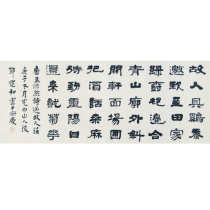 故人具雞黍
邀我至田家
綠樹村邊合
青山郭外斜
開軒面場圃
把酒話桑麻
待到重陽日
還來就菊花
唐孟浩然詩過故人莊